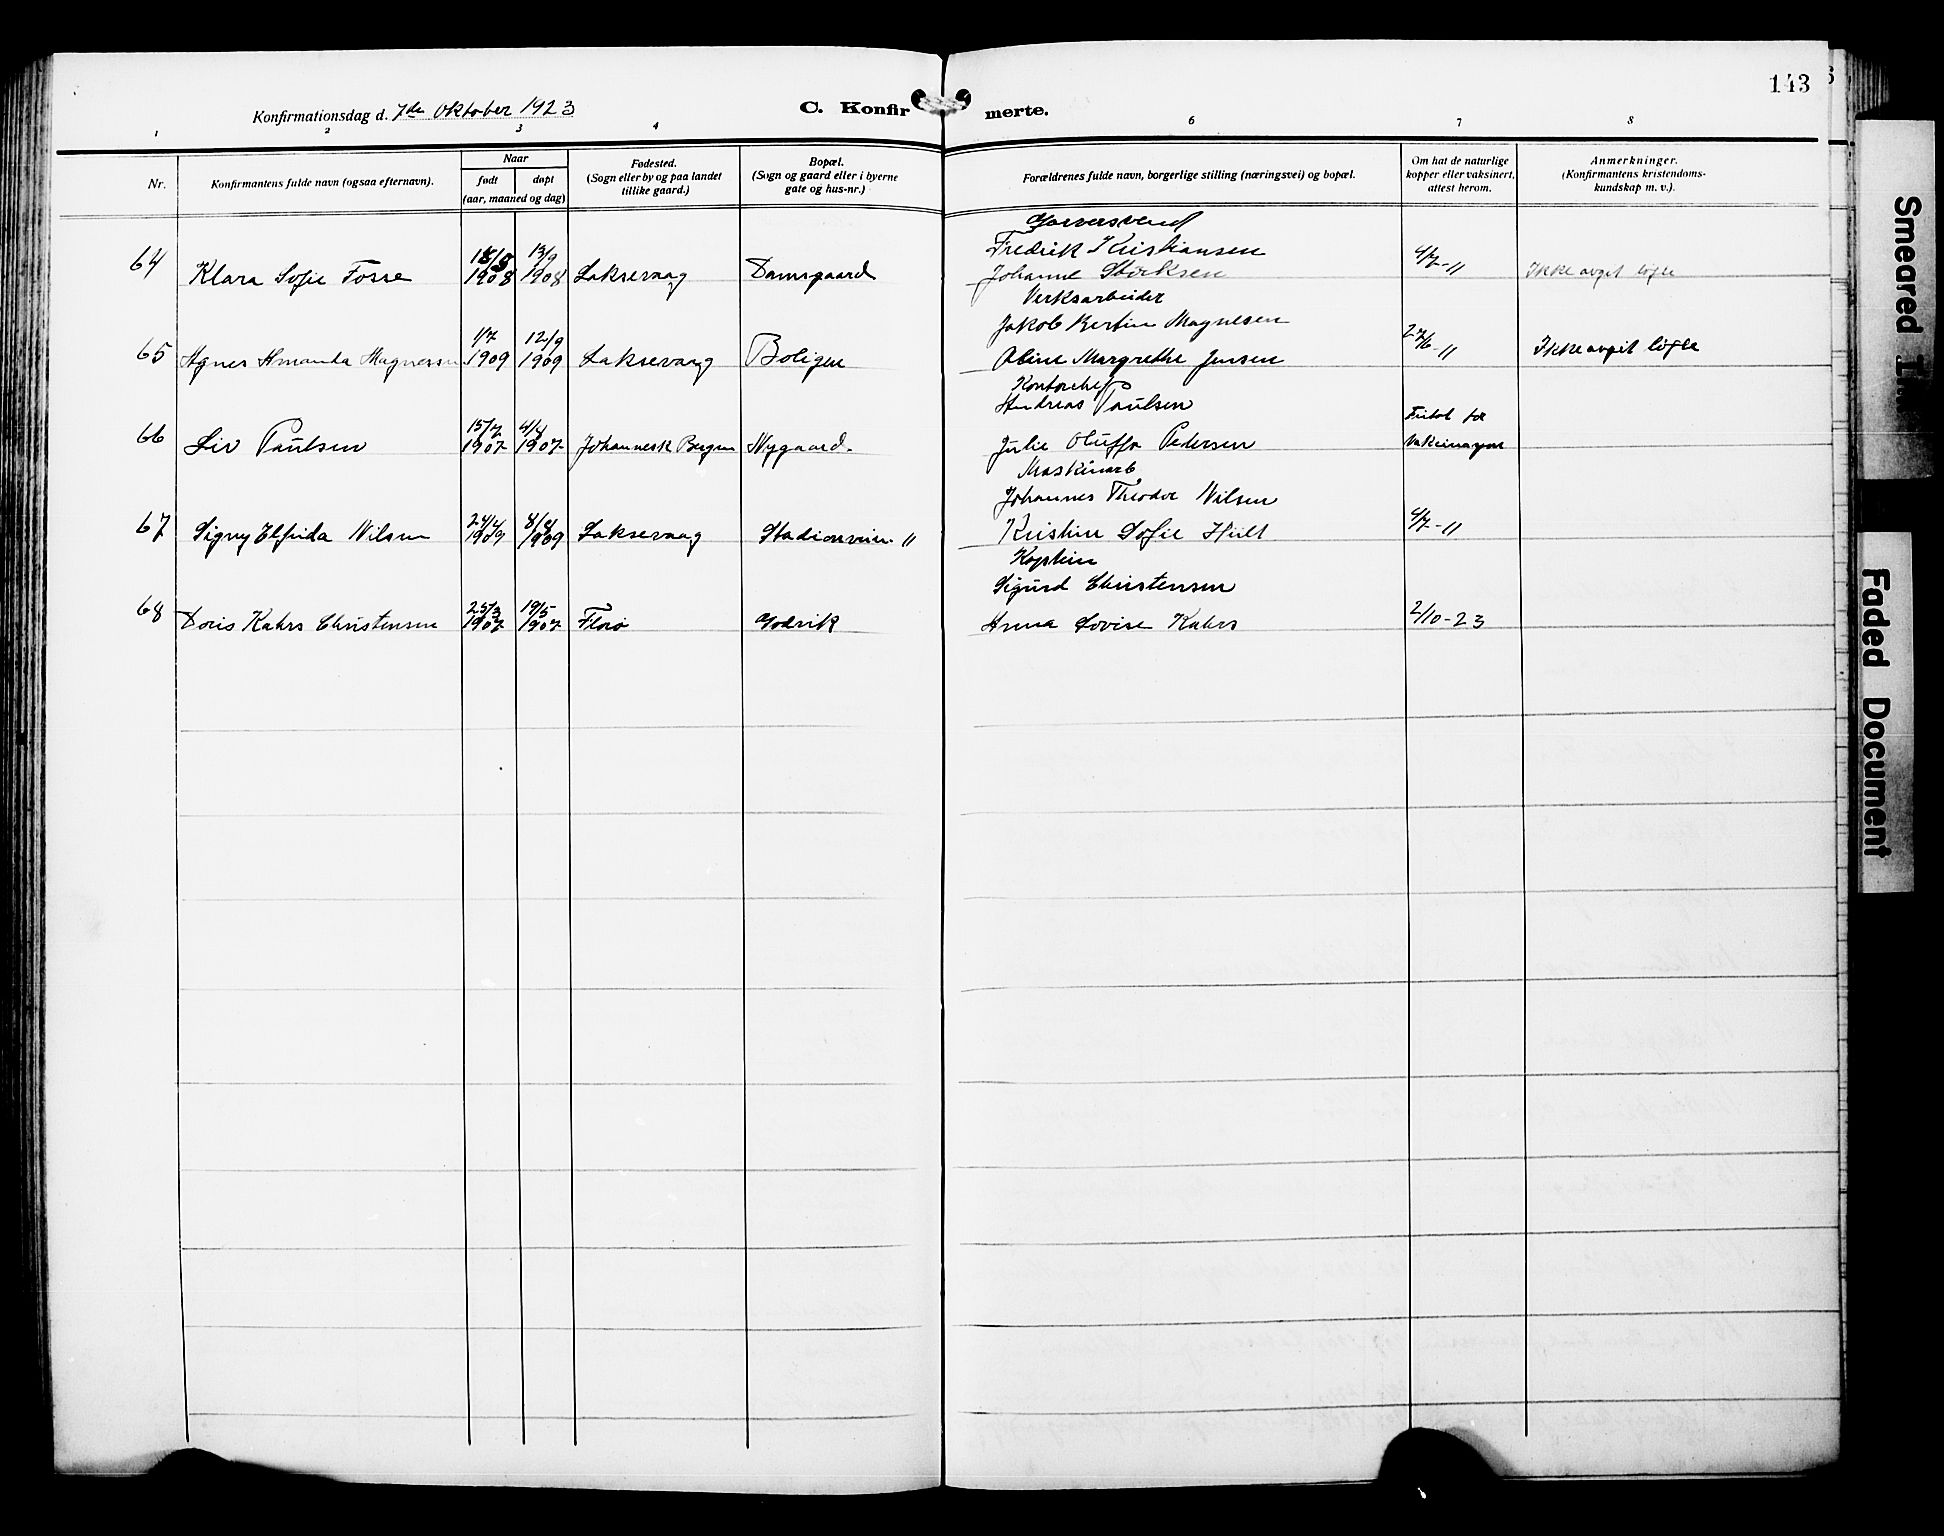 143
Konfirmationsdag d. 7de Oktober 1923
C. Konfirmerte.
1 2 3 4 6 7 8
Nr.
Konfirmantens fulde navn (ogsaa efternavn).
Naar
født døpt
(aar, maaned og dag)
Fødested.
(Sogn eller by og paa landet
tillike gaard.)
Bopæl.
(Sogn og gaard eller i byerne
gate og hus-nr.)
Forældrenes fulde navn, borgerlige stilling (næringsvei) og bopæl.
Om hat de naturlige
kopper eller vaksinert,
attest herom.
Anmerkninger.
(Konfirmantens kristendoms-
kundskap m. v.).
Garversvend
Fredrik Kristiansen
64 Klara Sofie Fosse 1908 13/9 1908 Laksevaag Damsgaard Johanne Størksen 4/7-11 Ikke avgit løfte
Verksarbeider
Jakob Bertin Magnesen
65 Agnes Amanda Magnesen 1/7 1909 12/9 1909 Laksevaag Boligen Oline Margrethe Jensen 27/6-11 Ikke avgit løfte
Kontorchef
Andreas Paulsen
66 Liv Paulsen 15/2 1907 4/4 1907 Johannesk Bergen Nygaard. Julie Oluffa Pedersen Fritat for
Maskinarb
Johannes Theodor Nilsen
67 Signy Elfrida Nilsen 24/4 1909 8/8 1909 Laksevaag Stadionveien 11 Kristine Sofie Hült 4/7-11
Kaptein
Sigurd Christensen
68 Doris Kahrs Christensen 25/3 1907 19/5 1907 Florø Godvik Anna Lovise Kahrs 2/10-23
Smeared
Faded Document